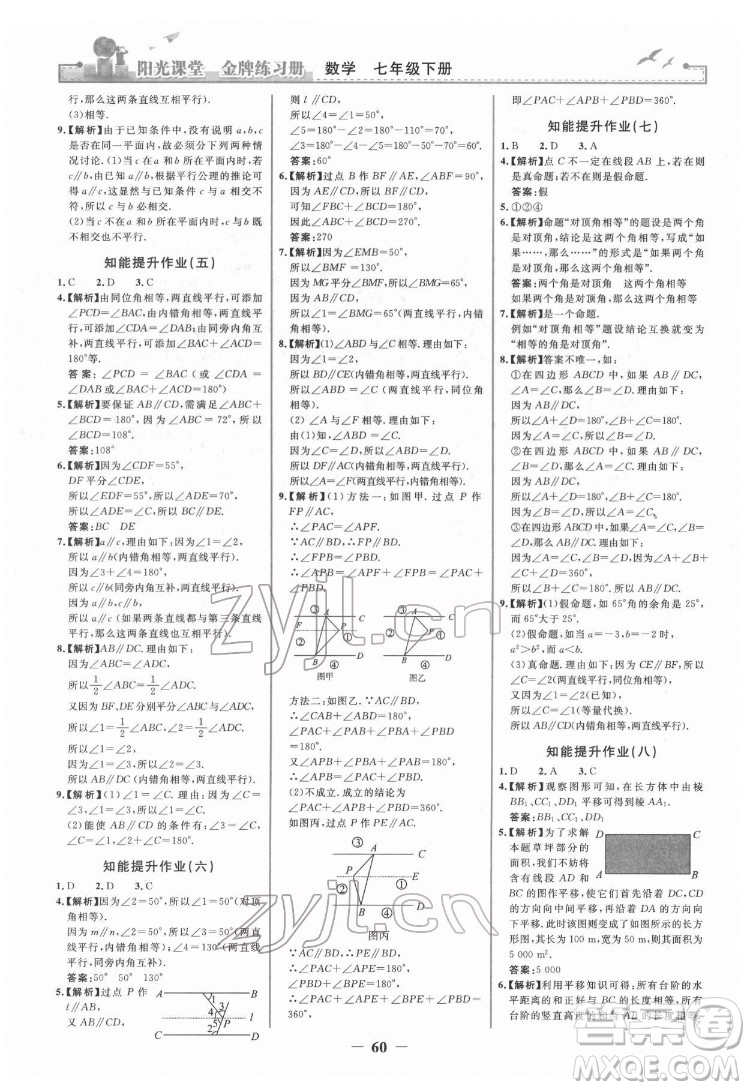 阳光课堂 金牌练习册 数学 七年级下册
行,那么这两条直线互相平行).
(3)相等.
9.【解析】由于已知条件中,直线a,b,c
是否在同一平面内,故必须分两种情
况讨论.(1)当a和b在同一平面内时,
a∥b,这显然与已知条件a和b相交不
符,所以c与b不平行.
(2)当c和b不在同一平面内时,c与b
不相交也不平行.
知能提升作业(五)
1.C 2.D 3.C
4.【解析】由同位角相等,两直线平行,可
添加∠PCD=∠BAC,由内错角相等,
两直线平行,可添加∠DCA=∠CAB
或∠DAB=∠PDC,由同旁内角互补,
两直线平行,可添加∠DCA+∠BAC=
180°等.
答案:∠PCD=∠BAC(或∠DCA=
∠CAB或∠DCA+∠BAC=180°)
5.【解析】要保证AB∥CD,需满足∠ABC+
∠BCD=180°,因为∠ABC=72°,所以
∠BCD=108°.
答案:108°
6.【解析】因为∠CDF=55°,
DF平分∠CDE,
所以∠EDF=55°,所以∠CDE=110°,
所以∠CDE=∠C,所以BC∥DE.
答案:BC DE
7.【解析】a∥c.理由如下:
因为∠1=∠2,
所以a∥b(内错角相等,两直线平行).
因为∠3+∠4=180°,
所以c∥b(同旁内角互补,两直线平行).
因为a∥b,c∥b,
所以a∥c(如果两条直线都与第三条直线
平行,那么这两条直线也互相平行).
8.【解析】AB∥DC.理由如下:
因为∠ABC=∠ADC,
所以1/2∠ABC=1/2∠ADC.
又因为BF,DE分别平分∠ABC与∠ADC,
所以∠1=1/2∠ABC,∠2=1/2∠ADC,
所以∠1=∠2.
因为∠1=∠3,所以∠2=∠3,
所以AB∥DC(内错角相等,两直线平行).
9.【解析】(1)因为∠1=∠2,∠2=∠3,
所以∠1=∠3.
(2)能使AB∥CD的条件有:∠3=∠4,
∠1=∠4,∠2=∠4.
知能提升作业(六)
1.D 2.D 3.C
4.【解析】因为∠2=50°,所以∠1=50°(对顶
角相等).
因为m∥n,所以∠2=∠3=50°(两直线平
行,内错角相等).所以∠4=130°(两直线
平行,同旁内角互补).
答案:50° 50° 130°
5.【解析】过点P作
l∥AB,
又AB∥CD,
A B
3
4 l
5 1
2
C D
则l∥CD,
所以∠4=∠1=60°,
∠5=180°-∠2=60°,所以∠3=180°-
∠4-∠5=180°-60°-60°=60°.
答案:60°
6.【解析】过点B作BF∥AE,因为CD∥AE,
则CD∥BF∥AE,
可知∠BCD+∠CBF=180°,
因此∠ABC+∠BCD=270°.
答案:270
7.【解析】因为∠EMB=50°,
所以∠BMF=130°.
因为MG平分∠BMF,
所以∠BMG=1/2∠BMF=65°.
因为AB∥CD,
所以∠1=∠BMG=65°(两直线平行,
内错角相等).
8.【解析】(1)∠ABD与∠C相等.理由如下:
因为∠1=∠2,
所以BD∥CE(同位角相等,两直线平行).
所以∠ABD=∠C(两直线平行,同位角
相等).
(2)∠A与∠F相等.理由如下:
由(1)知,∠ABD=∠C,
因为∠C=∠D,所以∠ABD=∠D.
所以DF∥AC(内错角相等,两直线平行).
所以∠A=∠F(两直线平行,内错角相等).
9.【解析】(1)方法一:如图甲.过点P作
FP∥AC,
∴∠PAC=∠APF.
∵AC∥BD,∴FP∥BD.
∴∠FPB=∠PBD.
∴∠APB=∠APF+∠FPB=∠PAC+
∠PBD.
③ A C
F P ①
②
B ④ D
图甲
③ A C
P
② ①
B ④ D
图乙
方法二:如图乙.∵AC∥BD,
∴∠CAB+∠ABD=180°,即∠PAC+
∠PAB+∠PBA+∠PBD=180°.
又∠APB+∠PBA+∠PAB=180°,
∴∠APB=∠PAC+∠PBD.
(2)不成立.
如图丙,过点P作PE∥AC,
∴∠PAC+∠APE+∠EPB+∠PBD=
360°,
③ A C
P E
② ①
B ④ D
图丙
∵∠APB=∠APE+∠EPB,
即∠PAC+∠APB+∠PBD=360°.
知能提升作业(七)
1.B 2.D 3.A
4.【解析】点C不一定在线段AB上,若在
则是真命题,若不在则是假命题.
答案:假
5.①②④
6.【解析】命题“对顶角相等”的题设是两个角
是对顶角,结论是这两个角相等,写成“如
果……,那么……”的形式是“如果两个角
是对顶角,那么这两个角相等”.
答案:两个角是对顶角 这两个角相等
7.【解析】是一个命题.
例如“对顶角相等”题设结论互换以后为
“相等的角是对顶角”.
8.【解析】答案不唯一,如:
①在四边形ABCD中,如果AB∥DC,
∠A=∠C,那么∠B=∠D.理由如下:
因为AB∥DC,
所以∠A+∠D=180°,∠B+∠C=180°.
因为∠A=∠C,所以∠B=∠D.
②在四边形ABCD中,如果AB∥DC,
∠B=∠D,那么∠A=∠C.理由如下:
因为AB∥DC,
所以∠A+∠D=180°,∠B+∠C=180°.
因为∠B=∠D,所以∠A=∠C.
③在四边形ABCD中,如果∠A=∠C,
∠B=∠D,那么AB∥DC.理由如下:
因为∠A+∠B+∠C+∠D=360°,∠A=
∠C,∠B=∠D,
所以∠B+∠C=180°,所以AB∥DC.
9.【解析】(1)假命题,如65°角的余角是25°,
而65°大于25°.
(2)假命题,如当a=-3,b=-2时,
a²>b²,而a<b.
(3)真命题.理由如下:因为CE∥BF,所
以∠C=∠BFD(两直线平行,同位角相等).
因为∠B=∠C,
所以∠B=∠BFD(等量代换).
所以AB∥CD(内错角相等,两直线平行).
知能提升作业(八)
1.D 2.A 3.C
4.【解析】观察图形可知,在长方体中由棱
BB₁,CC₁,DD₁平移可得到棱AA₁.
答案:BB₁,CC₁,DD₁
5.【解析】为了求解
本题草坪部分的
面积,因此将∠D
与∠C的图作平移,首先沿着DC的方向
向中间平移,再沿着DA的方向向
下平移,此时该图则变成一个正规的长方
形图形,长为100 m,宽为50 m,则面积为
5 000 m².
答案:5 000
D C
A B
6.【解析】利用平移知识可得:所有台阶的水
平距离的和正好与BC的长度相等,所有
台阶的竖直高度的和与AB的长度相等
60
zyjl.cn
zyjl.cn
答案圈
MXQE.COM